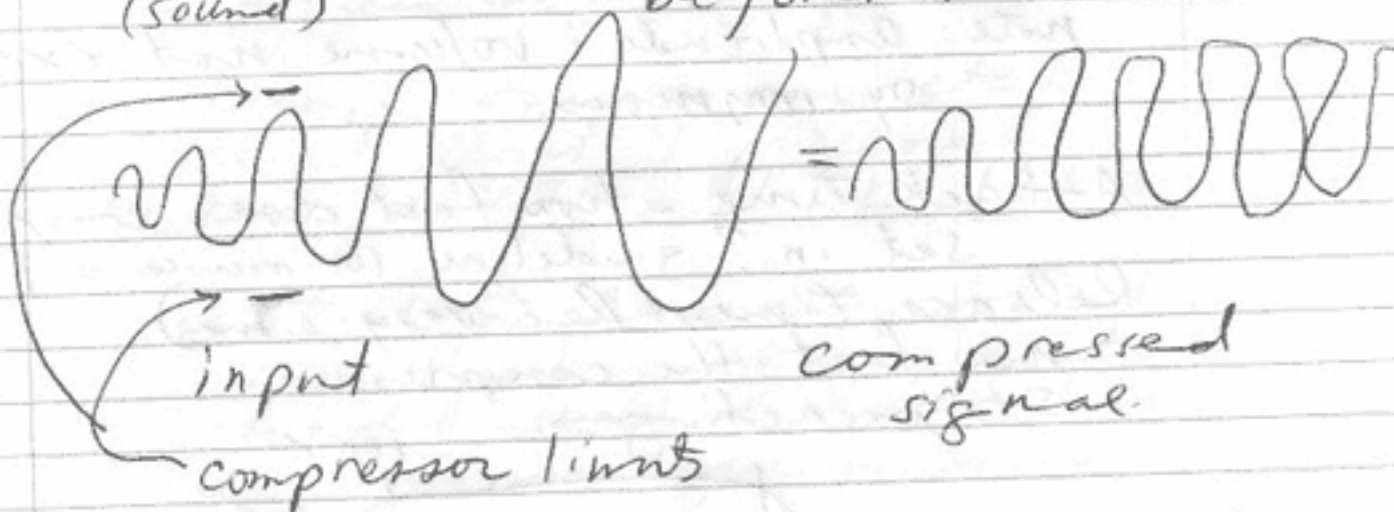 (sound) beyond
=
input
compressed
signal.
compressor limits